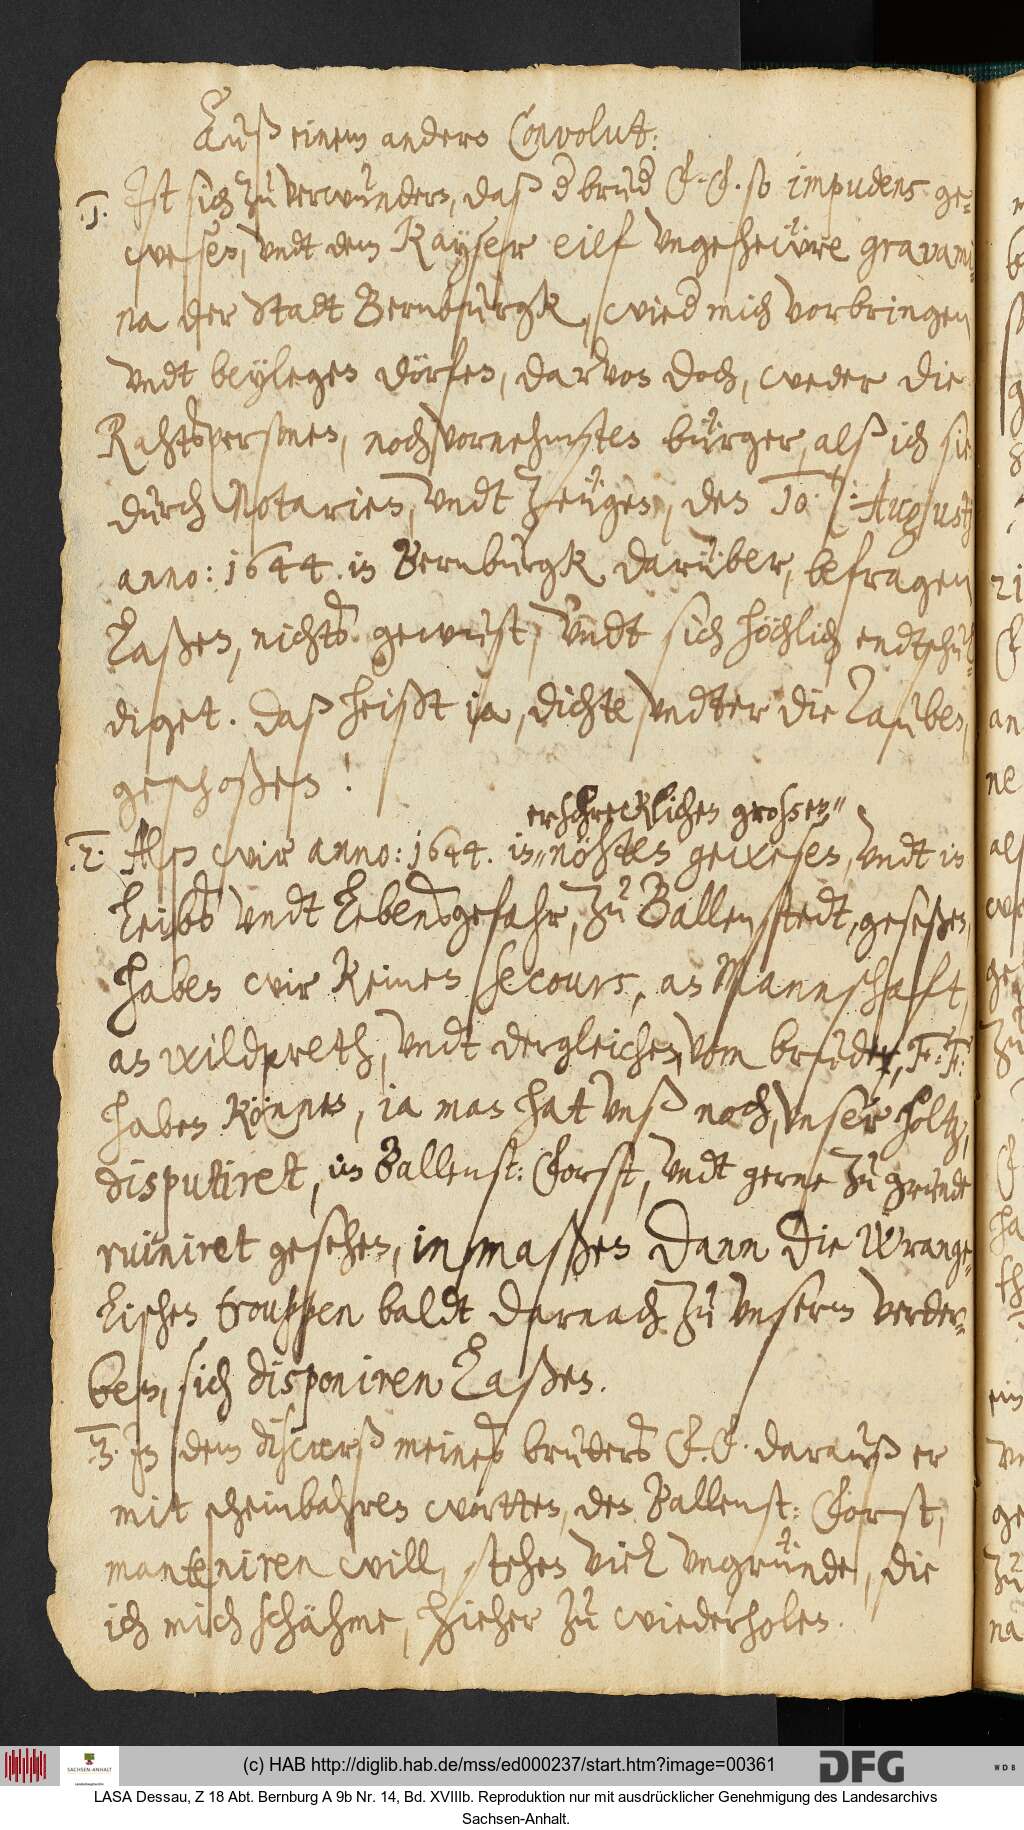 Auß einem andern Convolut:
.1. Ist sich zu verwundern, daß d brud F. F. so impudens ge¬
wesen, undt dem Kayser eilf ungeheüre gravami¬
na der Stadt Bernburgk, wied mich vorbringen
undt beylegen dörfen, darvon doch, weder die
Rahtspersonen, noch vornehmsten bürger, alß ich sie
durch Notarien, undt Zeügen, den 10. /: Augustj
anno: 1644. in Bernburgk darüber, befragen
Laßen, nichts gewust, undt sich höchlich endtschul¬
diget. Daß heißt ja, dichte undter die Tauben,
geschoßen!
erschrecklichen grossen"
.2. Alß wir anno: 1644. in" nöhten gewesen, undt in
Leibs undt Lebensgefahr, zu Ballenstedt, geseßen,
haben wir keinen secours, an Mannschaft,
an wildpreth, undt dergleichen, vom bruder, F. F.
haben können, ia man hat unß noch, unser holtz,
disputiret, im Ballenst: Forst, undt gerne zu grunde
ruiniret gesehen, inmaßen dann die Wrange¬
lischen trouppen baldt darnach zu unserm verder¬
ben, sich disponiren Laßen.
.3. In dem discurß meines bruders F. F. darauß er
mit scheinbahren wortten, den Ballenst: Forst,
manteniren will, stehen viel ungründe, die
ich mich schähme, hieher zu wiederholen.
(c) HAB http://diglib.hab.de/mss/ed000237/start.htm?image=00361
SACHSEN-ANHALT
DFG
WDB
LASA Dessau, Z 18 Abt. Bernburg A 9b Nr. 14, Bd. XVIIIb. Reproduktion nur mit ausdrücklicher Genehmigung des Landesarchivs
Sachsen-Anhalt.